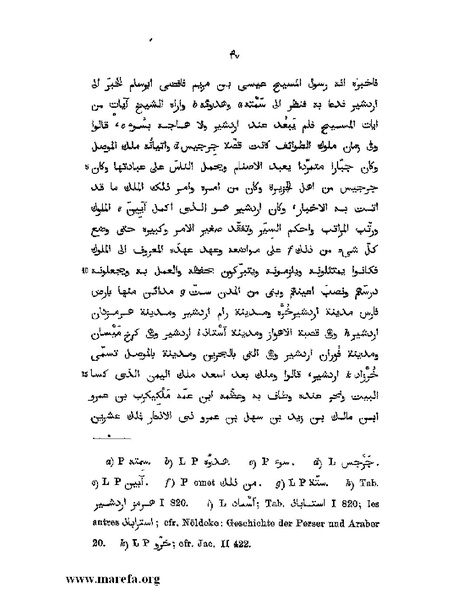 ٤٧
فاخبره انه رسول المسيح عيسى بن مريم فافضى ابرسام الخبر الى
اردشير فدعا به فنظر الى سَمْته a وهدوئه b واراه الشيخ آيات من
ايات المسيح فلم يَبعُد عند اردشير ولا هاجه بسُوء c، قالوا
وفى زمان ملوك الطوائف كانت قصّة جرجيس d واتيانه ملك الموصل
وكان جبّارا متمرّدا يعبد الاصنام ويحمل الناس على عبادتها وكان 5
جرجيس من اهل الجزيرة وكان من امره وامر ذلك الملك ما قد
اتت به الاخبار، وكان اردشير هو الذى اكمل آيين e الملوك
ورتّب المراتب واحكم السِيَر وتفقّد صغير الامر وكبيره حتى وضع
كلّ شىء من ذلك f على مواضعه وعهد عهده المعروف الى الملوك
فكانوا يمتثلونه ويلزمونه ويتبرّكون بحفظه والعمل به ويجعلونه 10
درسَهم ونصبَ اعينهم وبنى من المدن ستّ g مدائن منها بارض
فارس مدينة اردشيرخُرَّه ومدينة رام اردشير ومدينة هرمزدان
اردشير h وهى قصبة الاهواز ومدينة أستاذ i اردشير وهى كرخ مَيْسان
ومدينة فُوران اردشير وهى التى بالبحرين ومدينة بالموصل تسمّى
خُرَّزاد k اردشير، قالوا وملك بعد اسعد ملك اليمن الذى كسا 15
البيت ونحر عنده وطاف به وعظّمه ابن عمّه مَلْكيكرب بن عمرو
ابن مالك بن زيد بن سهل بن عمرو ذى الاذعار فملك عشرين
a) P سمته. b) L P هدوّه. c) P سوء. d) L جَرْجس.
e) L P آيين. f) P omet من ذلك. g) L P ستّة. h) Tab.
I 820 هرمز اردشير. i) L أشماد; Tab. I 820 استاباذ; les
autres استراباذ; cfr. Nöldeke: Geschichte der Perser und Araber
20. k) L P خرّو; cfr. Jac. II 422.
www.marefa.org